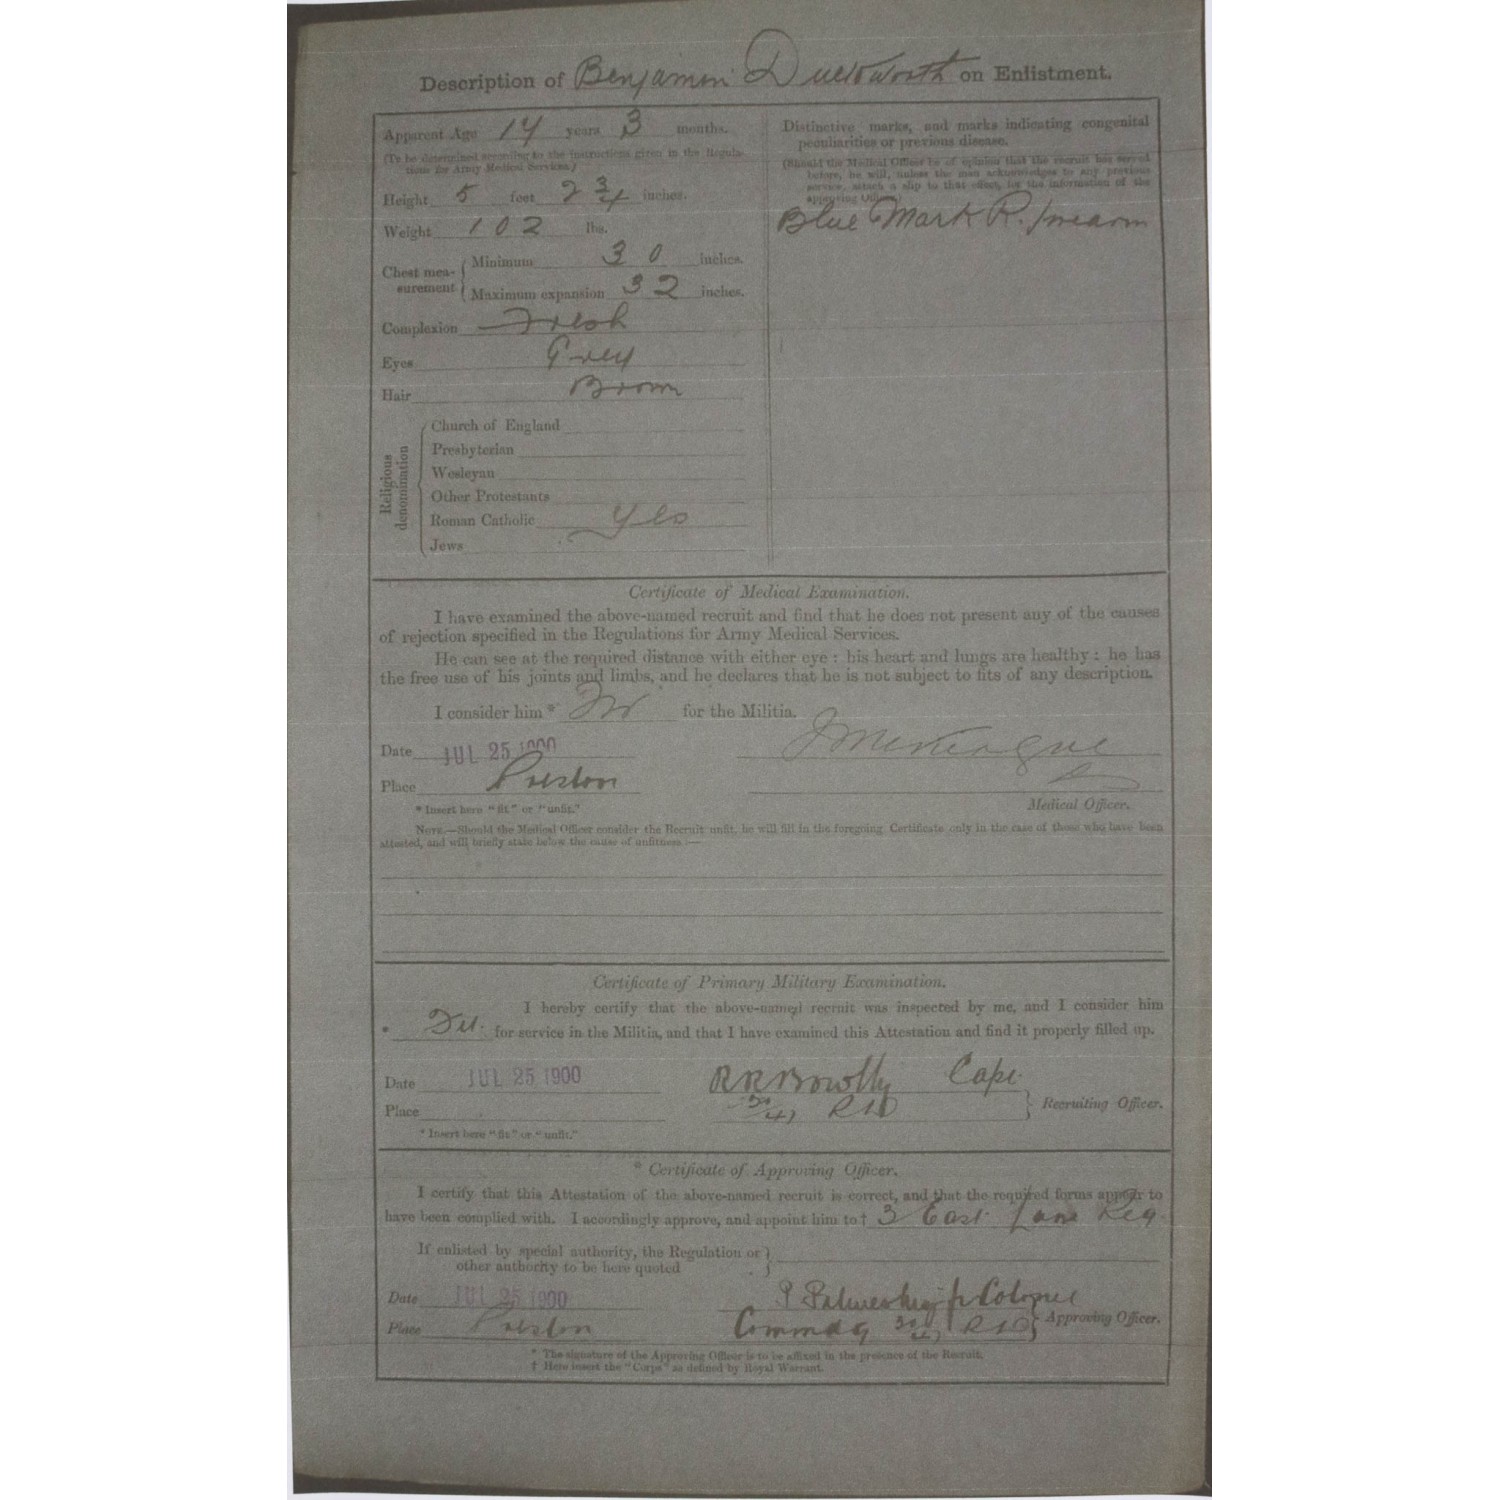 Description of Benjamin Duckworth on Enlistment.
Apparent Age 14 years 3 months.
(To be determined according to the instructions given in the Regula-
tions for Army Medical Services.)
Height 5 feet 2 3/4 inches.
Weight 102 lbs.
Chest mea-
surement
Minimum 30 inches.
Maximum expansion 32 inches.
Complexion Fresh
Eyes Grey
Hair Brown
Religious
denomination
Church of England
Presbyterian
Wesleyan
Other Protestants
Roman Catholic Yes
Jews
Distinctive marks, and marks indicating congenital
peculiarities or previous disease.
(Should the Medical Officer be of opinion that the recruit has served
before, he will, unless the man acknowledges to any previous
service, attach a slip to that effect, for the information of the
approving Officer.)
Blue Mark R. forearm
Certificate of Medical Examination.
I have examined the above-named recruit and find that he does not present any of the causes
of rejection specified in the Regulations for Army Medical Services.
He can see at the required distance with either eye : his heart and lungs are healthy : he has
the free use of his joints and limbs, and he declares that he is not subject to fits of any description.
I consider him * for the Militia.
Date JUL 25 1900
Place Preston
Medical Officer.
* Insert here "fit" or "unfit."
NOTE.—Should the Medical Officer consider the Recruit unfit, he will fill in the foregoing Certificate only in the case of those who have been
attested, and will briefly state below the cause of unfitness :—
Certificate of Primary Military Examination.
I hereby certify that the above-named recruit was inspected by me, and I consider him
* Fit. for service in the Militia, and that I have examined this Attestation and find it properly filled up.
Date JUL 25 1900
Place
Capt.
Recruiting Officer.
* Insert here "fit" or "unfit."
* Certificate of Approving Officer.
I certify that this Attestation of the above-named recruit is correct, and that the required forms appear to
have been complied with. I accordingly approve, and appoint him to † 3 East Lanc Reg
If enlisted by special authority, the Regulation or
other authority to be here quoted
Date JUL 25 1900
Place Preston
Colonel
Commdg
Approving Officer.
* The signature of the Approving Officer is to be affixed in the presence of the Recruit.
† Here insert the "Corps" as defined by Royal Warrant.